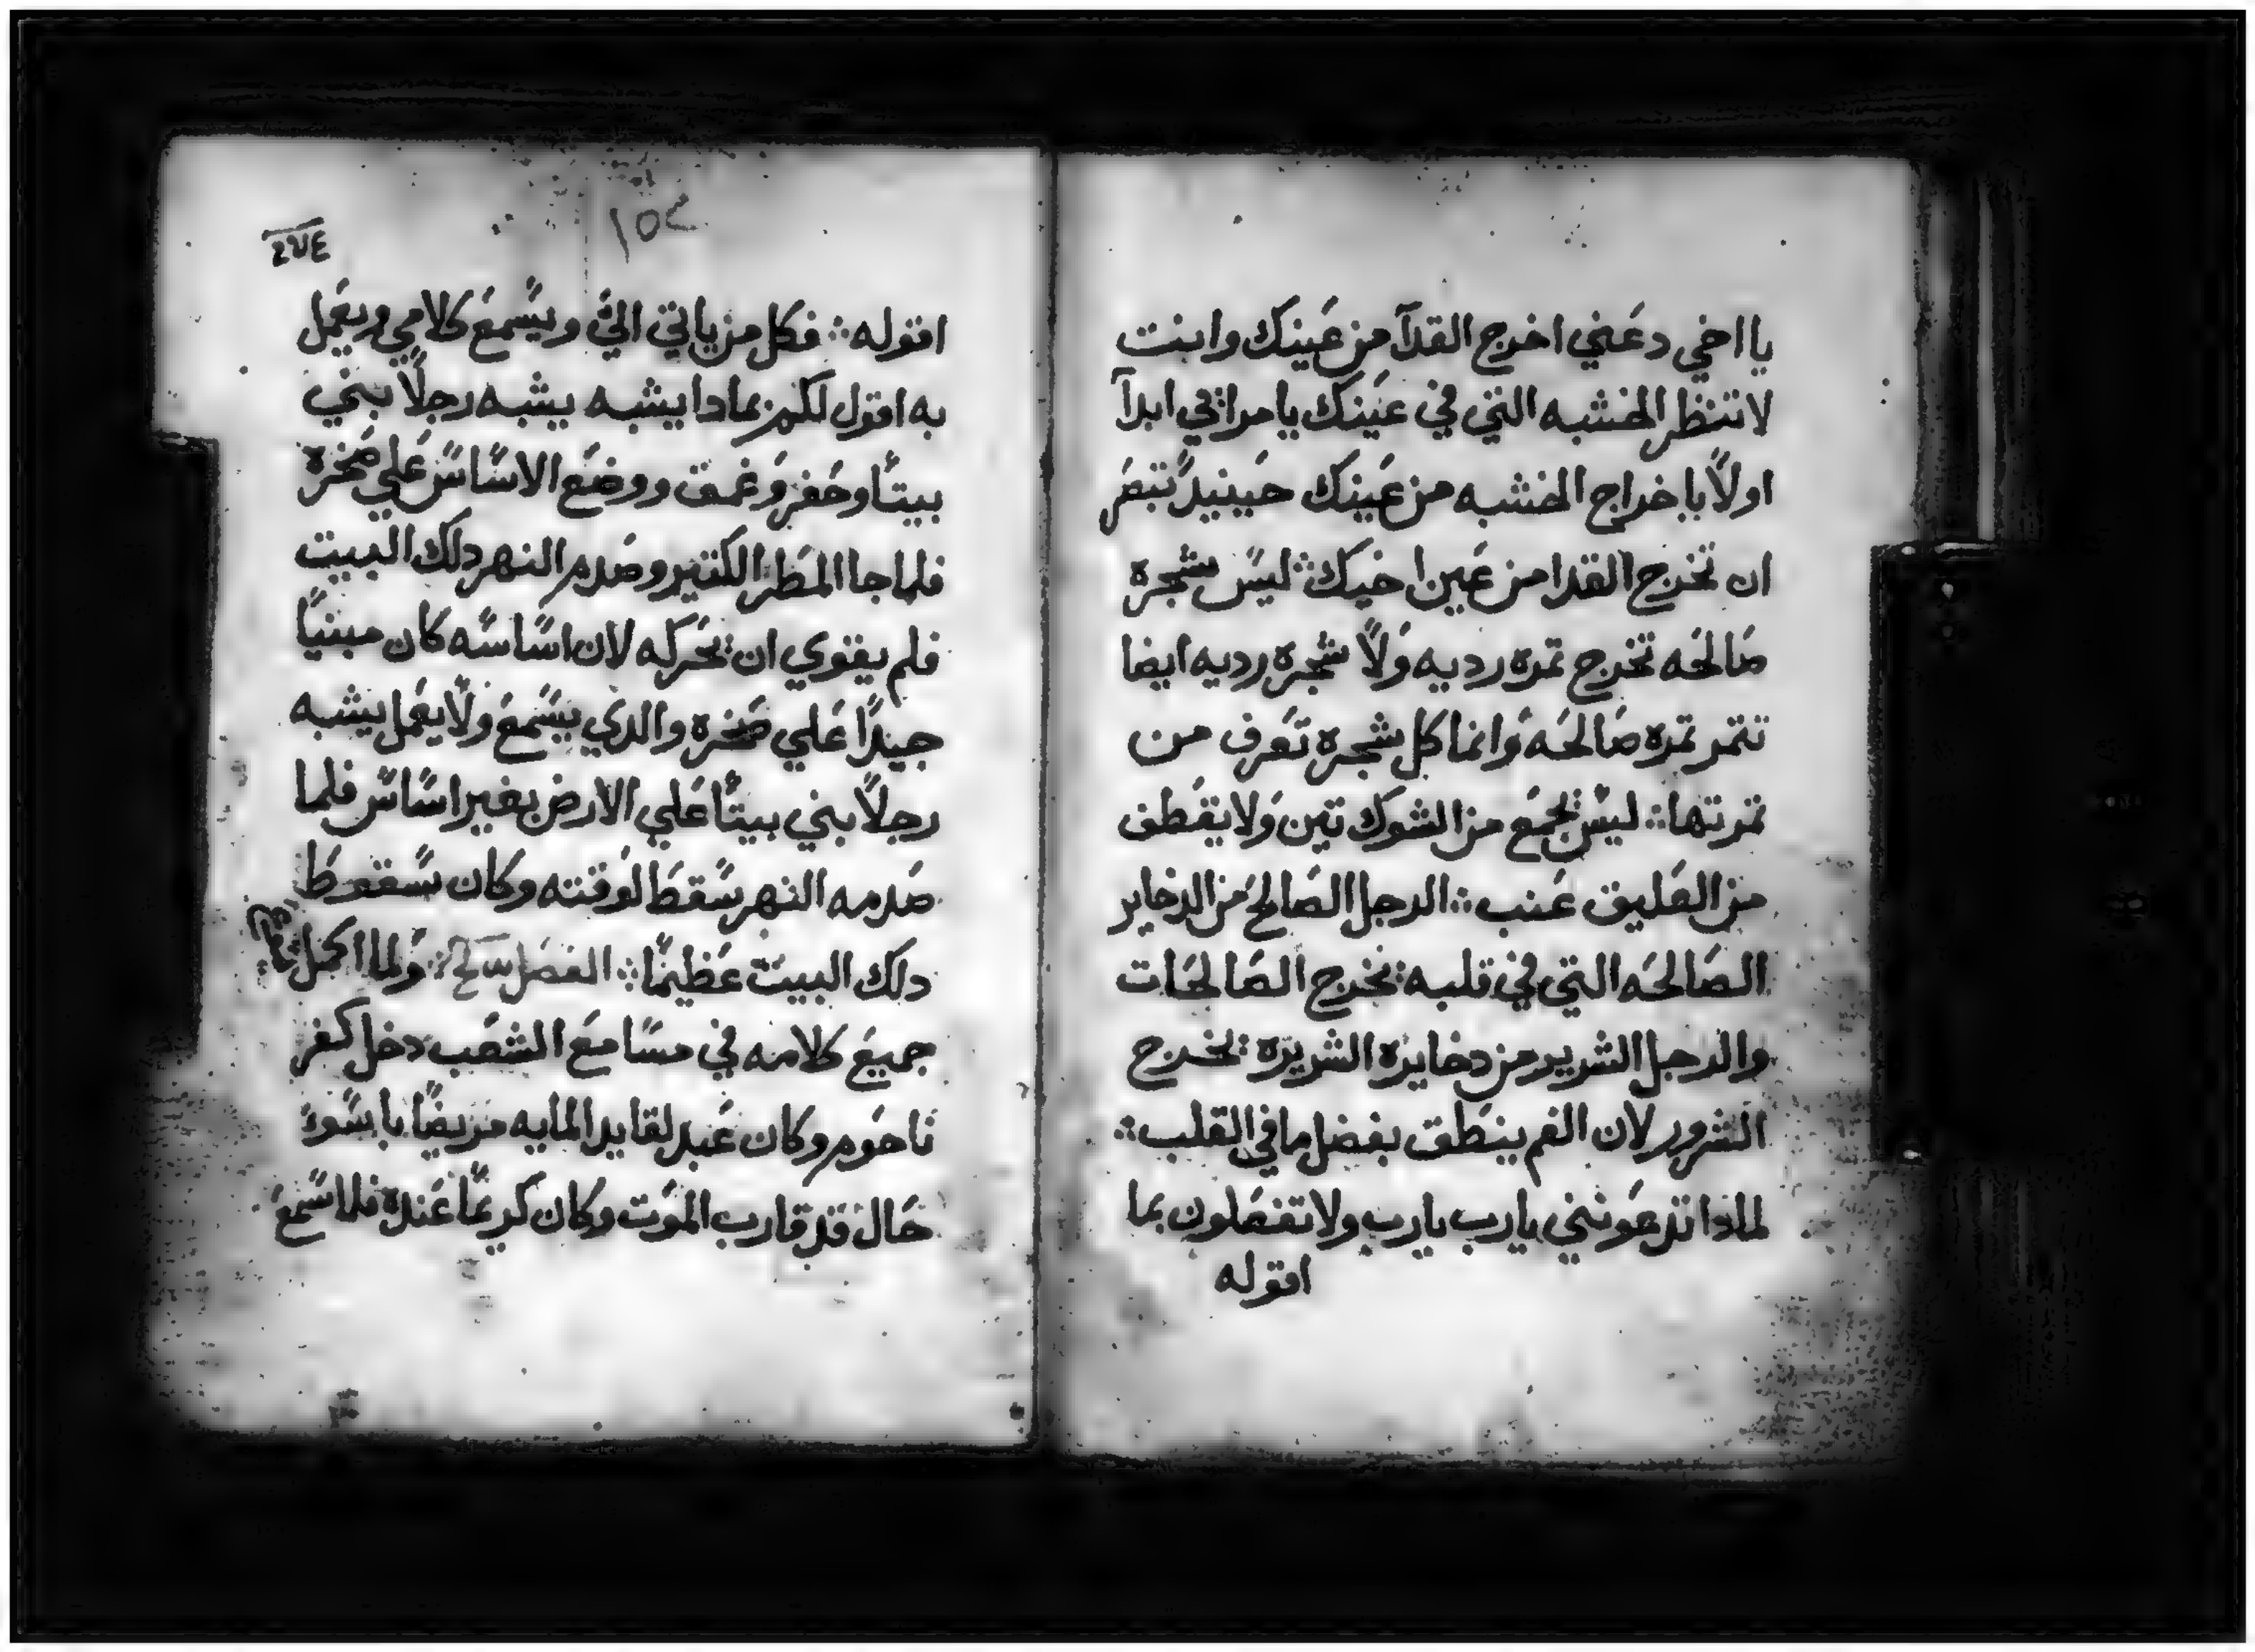 يا اخي دعني اخرج القدآ من عينك وانت
لا تنظر الخشبه التي في عينك يا مرائي ابدآ
اولاً باخراج الخشبه من عينك حينيدٍ تبصر
ان تخرج القدا من عين اخيك ∴ ليس شجره
صالحه تخرج تمره رديه ولا شجره رديه ايضا
تتمر تمره صالحه وانما كل شجره تعرف من
تمرتها ∴ ليس تجمع من الشوك تين ولا يقطف
من العليق عنب ∴ الرجل الصالح من الدخاير
الصالحه التي في قلبه يخرج الصالحات
والرجل الشرير من دخايره الشريره يخرج
الشرور لان الفم ينطق بفضل ما في القلب ∴
لمادا تدعونني يا رب يا رب ولا تفعلون بما
اقوله
١٥٤
اقوله ∴ فكل من ياتي اليَّ ويسمع كلامي ويعمل
به اقول لكم بمادا يشبه يشبه رجلاً بني
بيتاً وحفر وغمق ووضع الاساس علي صخره
فلما جا المطر الكتير وصدم النهر دلك البيت
فلم يقوي ان يحركه لان اساسه كان مبنياً
جيداً علي صخره والدي يسمع ولا يعمل يشبه
رجلاً بني بيتاً علي الارض بغير اساس فلما
صدمه النهر سقط لوقته وكان سقوط
دلك البيت عظيماً ∴ الفصل ∴ ولما اكمل
جميع كلامه في مسامع الشعب دخل كفر
ناحوم وكان عبد لقايد المايه مريضاً باسوء
حال قد قارب الموت وكان كريماً عنده فلما سمع